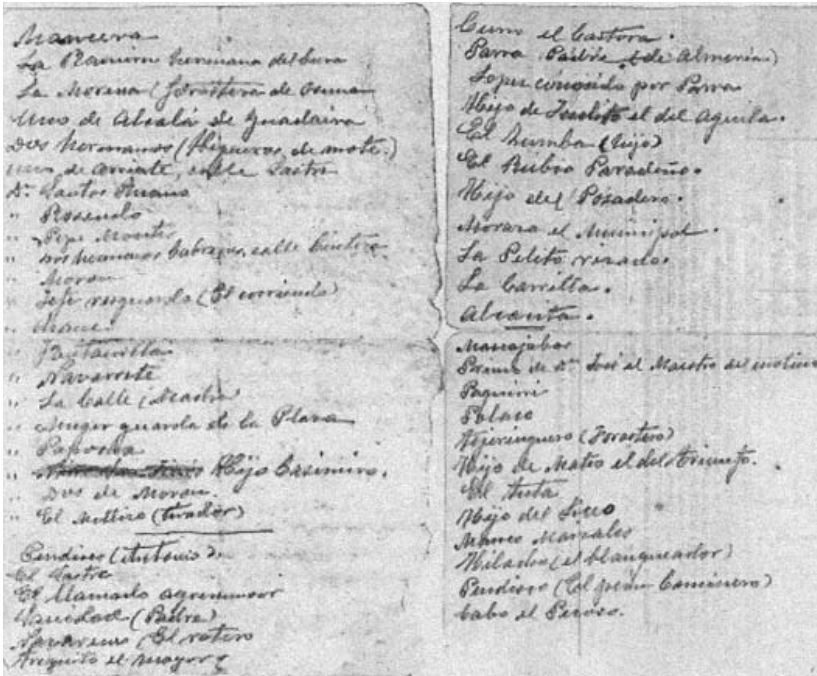 Mancera
La Ramira hermana del Cura
La Morena (forastera de Osuna
Uno de Alcalá de Guadaira
Dos hermanos (Higueros, de mote.)
uno de Arriate, calle Sastre
Dn. Santos Ruano
" Rosendo
" Pepe Montes
" dos hermanos Cabrapes, calle
" Moran
" Jefe resguardo (El corriendo)
"
"
" Navarrete
" La Calle (Madre
" Muger guarda de la Plaza
"
" Hijo Casimiro.
" Dos de Moran.
" El (tirador)
Pendison (Antonio).
El Sastre
El llamado agrimensor
Vanidad (Padre)
Navarino (El ratero
Frasquito el mayor
Curro el Castora.
Parra (Padre (de Almeria.)
Lopez conocido por Parra
Hijo de Joselito el del Aguila.
El Zumba (hijo)
El Rubio Paradeño.
Hijo del Posadero.
Morara el Municipal.
La Pelito rizado.
La Carrilla.
Alcanta.
José el Maestro del molino
Paquirri
Polaco
Ajeringuero (Forastero)
Hijo de Mateo el del Triunfo.
El Tuta
Hijo del Sico
Marco Morales
Hilacho (el blanqueador)
Pendison (El peon Caminero)
Cabo el Peroso.